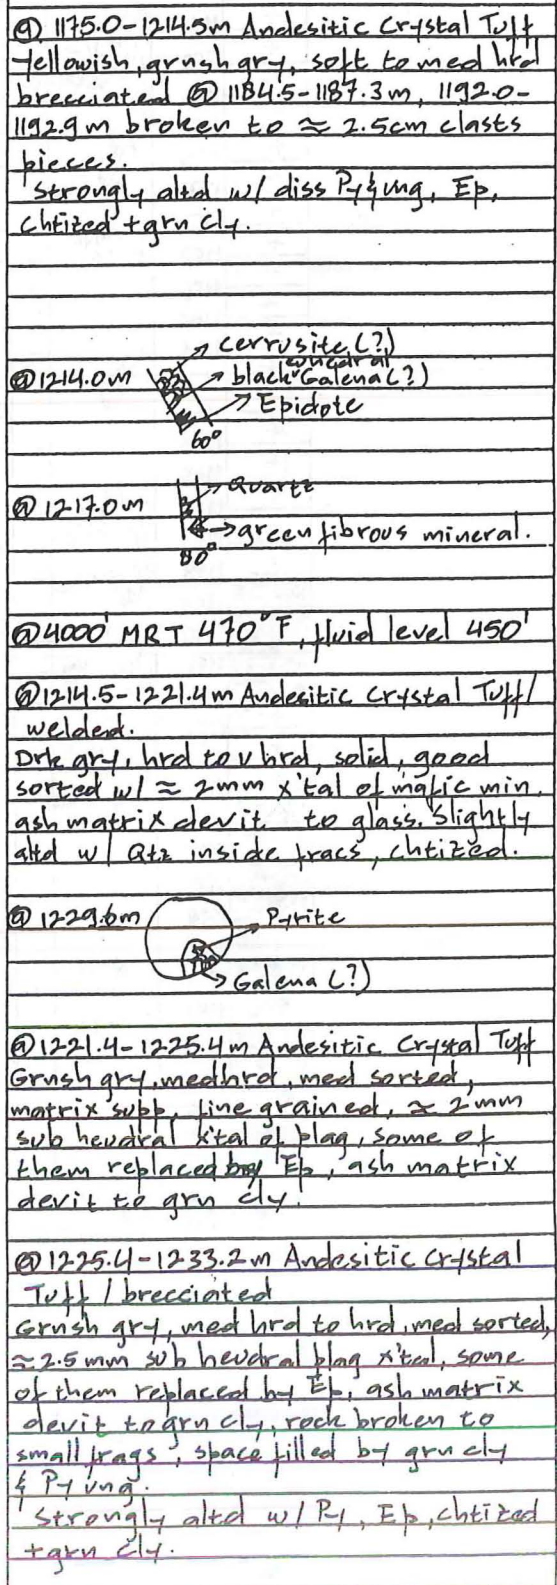 @ 1175.0-1214.5m Andesitic Crystal Tuff
Yellowish, grnsh gry, soft to med hrd
brecciated @ 1184.5-1187.3m, 1192.0-
1192.9m broken to ≈ 2.5cm clasts
pieces.
Strongly altd w/ diss Py & ung, Ep,
chtized + grn cly.
→ cerrusite (?)
euhedral
@ 1214.0m → black Galena (?)
→ Epidote
60°
→ Quartz
@ 1217.0m
→ green fibrous mineral.
80°
@ 4000' MRT 470°F, fluid level 450'
@ 1214.5-1221.4m Andesitic Crystal Tuff/
welded.
Drk gry, hrd to v hrd, solid, good
sorted w/ ≈ 2mm x'tal of mafic min,
ash matrix devit to glass. Slightly
altd w/ Qtz inside fracs, chtized.
@ 1229.6m → Pyrite
→ Galena (?)
@ 1221.4-1225.4m Andesitic Crystal Tuff
Grnsh gry, med hrd, med sorted,
matrix supp, fine grained, ≈ 2mm
sub heudral x'tal of plag, some of
them replaced by Ep, ash matrix
devit to grn cly.
@ 1225.4-1233.2m Andesitic Crystal
Tuff / brecciated
Grnsh gry, med hrd to hrd, med sorted,
≈ 2.5mm sub heudral plag x'tal, some
of them replaced by Ep, ash matrix
devit to grn cly, rock broken to
small frags, space filled by grn cly
& Py ung.
Strongly altd w/ Py, Ep, chtized
+ grn cly.